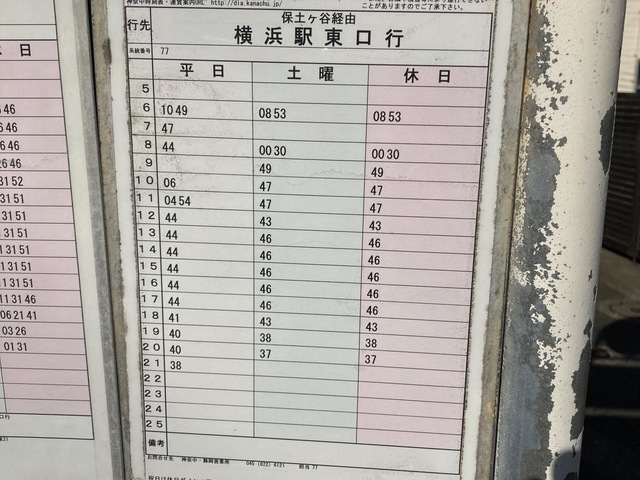 神奈中時刻表・運賃案内URL http://dia.kanachu.jp/
ことがありますのでご了承下さい。
行先
保土ヶ谷経由
横浜駅東口行
系統番号 77
平日 土曜 休日
5
6 10 49 08 53 08 53
7 47
8 44 00 30 00 30
9 49 49
10 06 47 47
11 04 54 47 47
12 44 43 43
13 44 46 46
14 44 46 46
15 44 46 46
16 44 46 46
17 44 46 46
18 41 43 43
19 40 38 38
20 40 37 37
21 38
22
23
24
25
備考
お問合せ先 神奈中・舞岡営業所 045(822)6121 担当 77
日
46
46
46
26 46
31 52
31 51
31 51
31 51
31 51
31 51
31 51
31 51
31 46
06 21 41
03 26
01 31